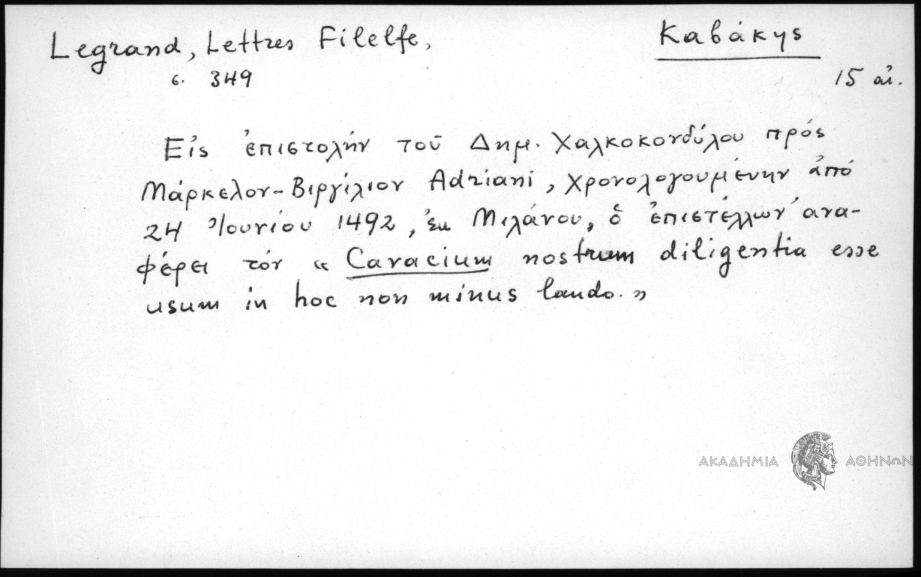 Legrand, Lettres Filelfe,
Καβάκης
σ. 349
15 αἰ.
Εἰς ἐπιστολήν τοῦ Δημ. Χαλκοκονδύλου πρός
Μάρκελον-Βιργίλιον Adriani, χρονολογουμένην ἀπό
24 Ἰουνίου 1492, ἐκ Μιλάνου, ὁ ἐπιστέλλων ἀνα-
φέρει τόν « Cavacium nostrum diligentia esse
usum in hoc non minus laudo. »
ΑΚΑΔΗΜΙΑ ΑΘΗΝΩΝ